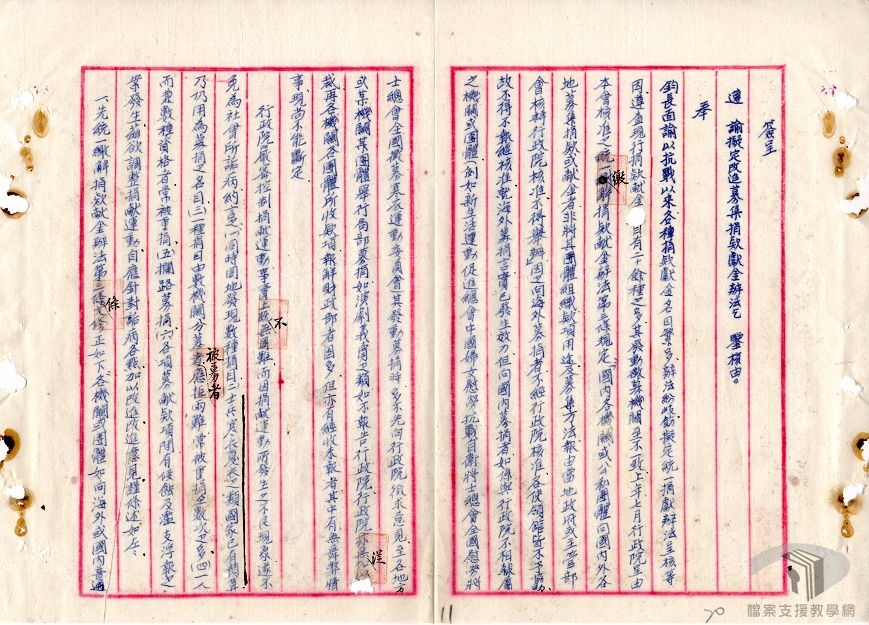 簽呈
遵 諭擬定改進募集捐款獻金辦法乞 鑒核由。
奉
鈞長面諭以抗戰以來各種捐款獻金名目繁多辦法紛岐飭擬定統一捐獻辦法呈核等
因遵查現行捐款獻金 目有二十餘種之多其發動徵募機關至不一致上年七月行政院呈由
本會核准之統一繳解捐款獻金辦法第三條規定「國內各機關或公私團體向國內外各
地募集捐款或獻金者非將其團體組織款項用途及募集方法報由當地政府或主管部
會核轉行政院核准不得舉辦」因之向海外募捐者不經行政院核准各使領館皆不予協助
故不得不報經核准就海外募捐言實已發生效力但向國內募捐者如係與行政院不相隸屬
之機關或團體(例如新生活運動促進總會中國婦女慰勞抗戰自衛將士總會全國慰勞將
士總會全國徵募寒衣運動委員會)其發動募捐時多不先向行政院徵求意見至各地方
或某機關某團體舉行局部募捐如演劇義賣之類如不報告行政院行政院亦無從
裁再各機關各團體所收款項報解財政部者固多但亦有經收未報者其中有無舞弊情
事現尚不能斷定
行政院嚴密控制捐獻運動事實上既不無困難而因捐獻運動所發生之不良現象遂不
免為社會所詬病約言之(一)同時同地發現數種捐目(二)士兵寒衣夏衣之類國家已有預算
乃仍用為募捐之名目(三)一種捐目由數機關分募被募者應拒兩難常被重捐至數次之多(四)一人
而兼數種資格者常被重捐(五)攔路募捐(六)各項募獻款項間有侵蝕及濫支浮報之
案發生茲欲調整捐獻運動自應針對詬病各點加以改進改進意見謹條述如左。
一、先統一繳解捐款獻金辦法第三條條文修正如下各機關或團體如向海外或國內普遍
11
70
檔案支援教學網